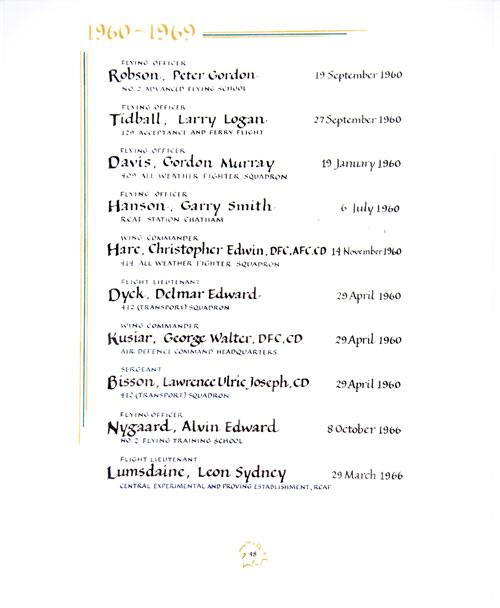 1960-1969
FLYING OFFICER
Robson, Peter Gordon 19 September 1960
NO. 2 ADVANCED FLYING SCHOOL
FLYING OFFICER
Tidball, Larry Logan 27 September 1960
129 ACCEPTANCE AND FERRY FLIGHT
FLYING OFFICER
Davis, Gordon Murray 19 January 1960
409 ALL WEATHER FIGHTER SQUADRON
FLYING OFFICER
Hanson, Garry Smith 6 July 1960
RCAF STATION CHATHAM
WING COMMANDER
Hare, Christopher Edwin, DFC, AFC, CD 14 November 1960
414 ALL WEATHER FIGHTER SQUADRON
FLIGHT LIEUTENANT
Dyck, Delmar Edward 29 April 1960
412 (TRANSPORT) SQUADRON
WING COMMANDER
Kusiar, George Walter, DFC, CD 29 April 1960
AIR DEFENCE COMMAND HEADQUARTERS
SERGEANT
Bisson, Lawrence Ulric Joseph, CD 29 April 1960
412 (TRANSPORT) SQUADRON
FLYING OFFICER
Nygaard, Alvin Edward 8 October 1966
NO. 2 FLYING TRAINING SCHOOL
FLIGHT LIEUTENANT
Lumsdaine, Leon Sydney 29 March 1966
CENTRAL EXPERIMENTAL AND PROVING ESTABLISHMENT, RCAF
48